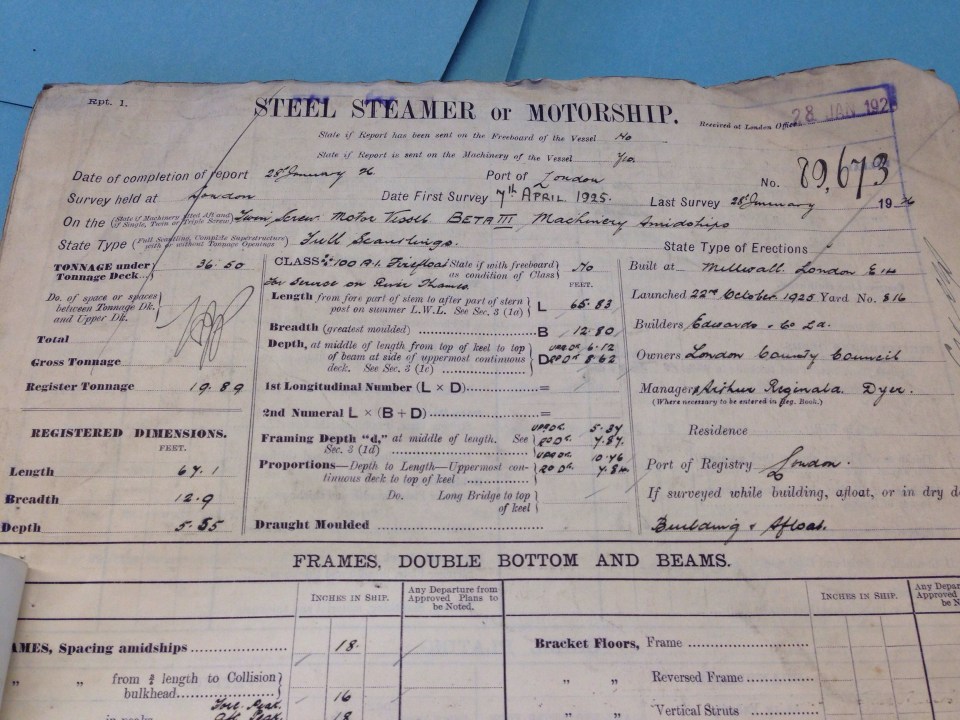 Rpt. 1.
STEEL STEAMER or MOTORSHIP.
Received at London Office
28 JAN 192
State if Report has been sent on the Freeboard of the Vessel No
State if Report is sent on the Machinery of the Vessel Yes.
Date of completion of report 28th January 26. Port of London
No. 89,673
Survey held at London Date First Survey 7th APRIL 1925. Last Survey 28th January 1926
On the (State if Machinery fitted Aft and if Single, Twin or Triple Screw) Twin Screw Motor Vessel BETA III Machinery Amidships
State Type (Full Scantling, Complete Superstructure with or without Tonnage Openings) Full Scantlings.
State Type of Erections
TONNAGE under Tonnage Deck... 36.50
Do. of space or spaces between Tonnage Dk. and Upper Dk.
Total
Gross Tonnage
Register Tonnage 19.89
REGISTERED DIMENSIONS.
FEET.
Length 67.1
Breadth 12.9
Depth 5.55
CLASS 100 A.1. Firefloat State if with freeboard as condition of Class No
For Service on River Thames.
FEET.
Length from fore part of stem to after part of stern post on summer L.W.L. See Sec. 3 (1a) L 65.83
Breadth (greatest moulded) B 12.80
Depth, at middle of length from top of keel to top of beam at side of uppermost continuous deck. See Sec. 3 (1c) D UPR DK 6.12
RD DK 8.62
1st Longitudinal Number (L × D) =
2nd Numeral L × (B + D) =
Framing Depth "d," at middle of length. See Sec. 3 (1d) UPR DK. 5.37
RD DK. 7.87.
Proportions—Depth to Length—Uppermost continuous deck to top of keel UPR DK. 10.76
RD DK. 7.64
Do. Long Bridge to top of keel
Draught Moulded
Built at Millwall London E14
Launched 22nd October 1925 Yard No. 816
Builders Edwards & Co Ld.
Owners London County Council
Managers Arthur Reginald Dyer.
(Where necessary to be entered in Reg. Book.)
Residence
Port of Registry London.
If surveyed while building, afloat, or in dry d
Building & Afloat.
FRAMES, DOUBLE BOTTOM AND BEAMS.
INCHES IN SHIP.
Any Departure from Approved Plans to be Noted.
INCHES IN SHIP.
Any Depar
Approved
be N
AMES, Spacing amidships 18.
" " from ⅗ length to Collision bulkhead 16
in peaks Fore Peak.
Aft Peak. 18
Bracket Floors, Frame
" " Reversed Frame
" " Vertical Struts